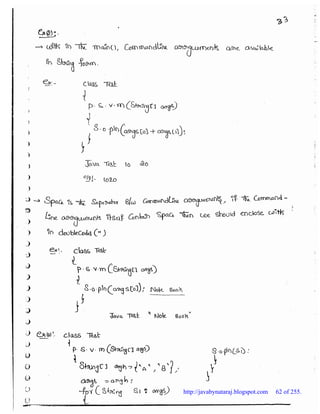 33
Case(2):-
→ with in The main(), Commandline arguments are available
in String form.
Ex:- class Test
{
p. s. v. m (String[] args)
{
S.o.pln(args[0] + args[1]);
}
}
Java Test 10 20
o/p:- 1020
→ Space is the Seperator b/w Commandline arguments, if the Command-
Line arguments itself Contain Space Then we should enclose with
in doubleCodes (")
Ex:- class Test
{
p. s. v. m (String[] args)
{
S.o.pln(args[0]); Note Book
}
}
Java Test " Note Book"
class Test
{
p. s. v. m (String[] args) S.o.pln(S1);
{ }
String[] argh = {'A', 'B'}; }
args = argh; }
for (String S1 : args)
http://javabynataraj.blogspot.com 62 of 255.